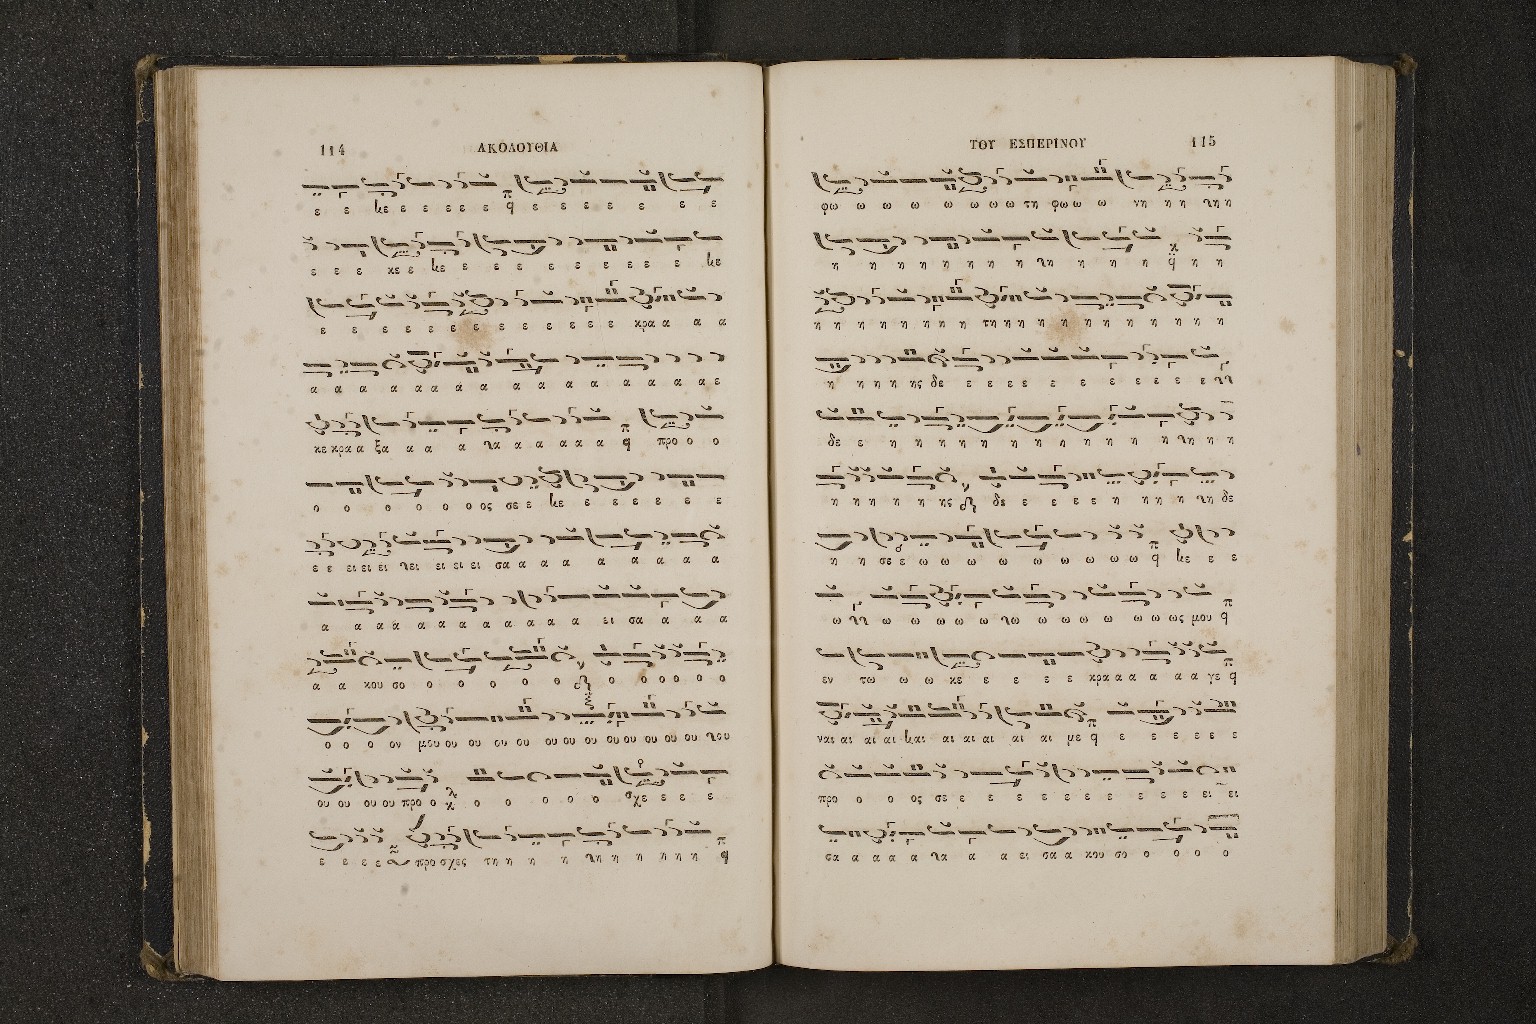 114 ΑΚΟΛΟΥΘΙΑ
ε ε κε ε ε ε ε ε ε ε ε ε ε ε ε ε
ε ε ε κε ε κε ε ε ε ε ε ε ε ε ε κε
ε ε ε ε ε ε ε ε ε ε ε ε κρα α α α
α α α α α α α α α α α α α α α α ε
κε κρα α ξα α α α γα α α α α α προ ο ο
ο ο ο ο ο ο ος σε ε κε ε ε ε ε ε ε
ε ε ει ει ει γει ει ει ει σα α α α α α α α α
α α α α α α α α α α α α ει σα α α α
α α κου σο ο ο ο ο ο ο ο ο ο ο ο
ο ο ο ον μου ου ου ου ου ου ου ου ου ου ου ου γου
ου ου ου ου προ ο ο ο ο ο ο σχε ε ε ε
ε ε ε ε προ σχες τη η η η γη η η η η η
ΤΟΥ ΕΣΠΕΡΙΝΟΥ 115
φω ω ω ω ω ω ω ω τη φω ω ω νη η η γη η
η η η η η η η γη η η η η η
η η η η η η η τη η η η η η η η η η η η
η η η η ης δε ε ε ε ε ε ε ε ε ε ε ε
δε ε η η η η η η η η η η η η γη η η
η η η η η ης δε ε ε ε ε η η η η γη δε
η η σε ε ω ω ω ω ω ω ω ω ω κε ε ε
ω ω ω ω ω ω γω ω ω ω ω ω ω ως μου
εν τω ω ω κε ε ε ε ε κρα α α α α α γε
ναι αι αι αι και αι αι αι αι αι με ε ε ε ε ε ε
προ ο ο ος σε ε ε ε ε ε ε ε ε ε ε ει ει
σα α α α α γα α α ει σα α κου σο ο ο ο ο